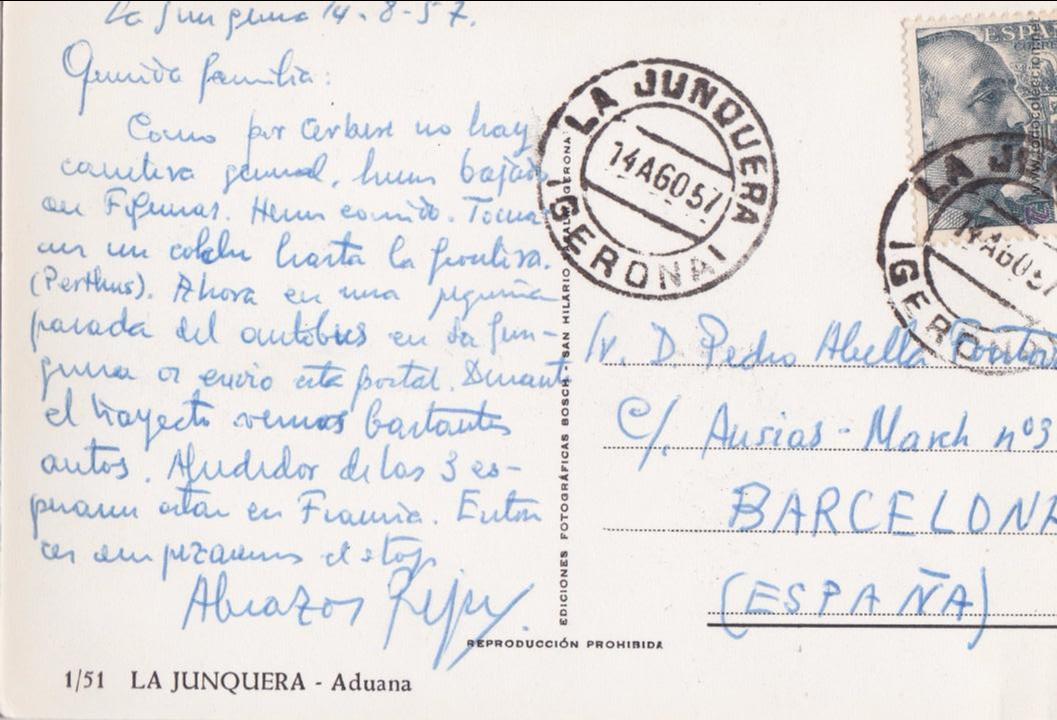 La Junquera 14-8-57.
Querida familia:
Como por Cerbere no hay
carretera general, hemos bajado
en Figueras. Hemos comido. Toma-
mos un coche hasta la frontera.
(Perthus). Ahora en una pequeña
parada del autobus en La Jun-
quera os envio esta postal. Durante
el trayecto vemos bastantes
autos. Alrededor de las 3 es-
peramos estar en Francia. Enton
ces empezaremos el stop.
Abrazos
1/51 LA JUNQUERA - Aduana
EDICIONES FOTOGRÁFICAS BOSCH - SAN HILARIO SALM GERONA
REPRODUCCIÓN PROHIBIDA
LA JUNQUERA
14AGO57
(GERONA)
ESPAÑ
CORRE
www.todocoleccion.net
LA JU
14AGO57
(GERON
Sr. D. Pedro Abella Fonta
C/. Ausias-March nº3
BARCELONA
(ESPAÑA)